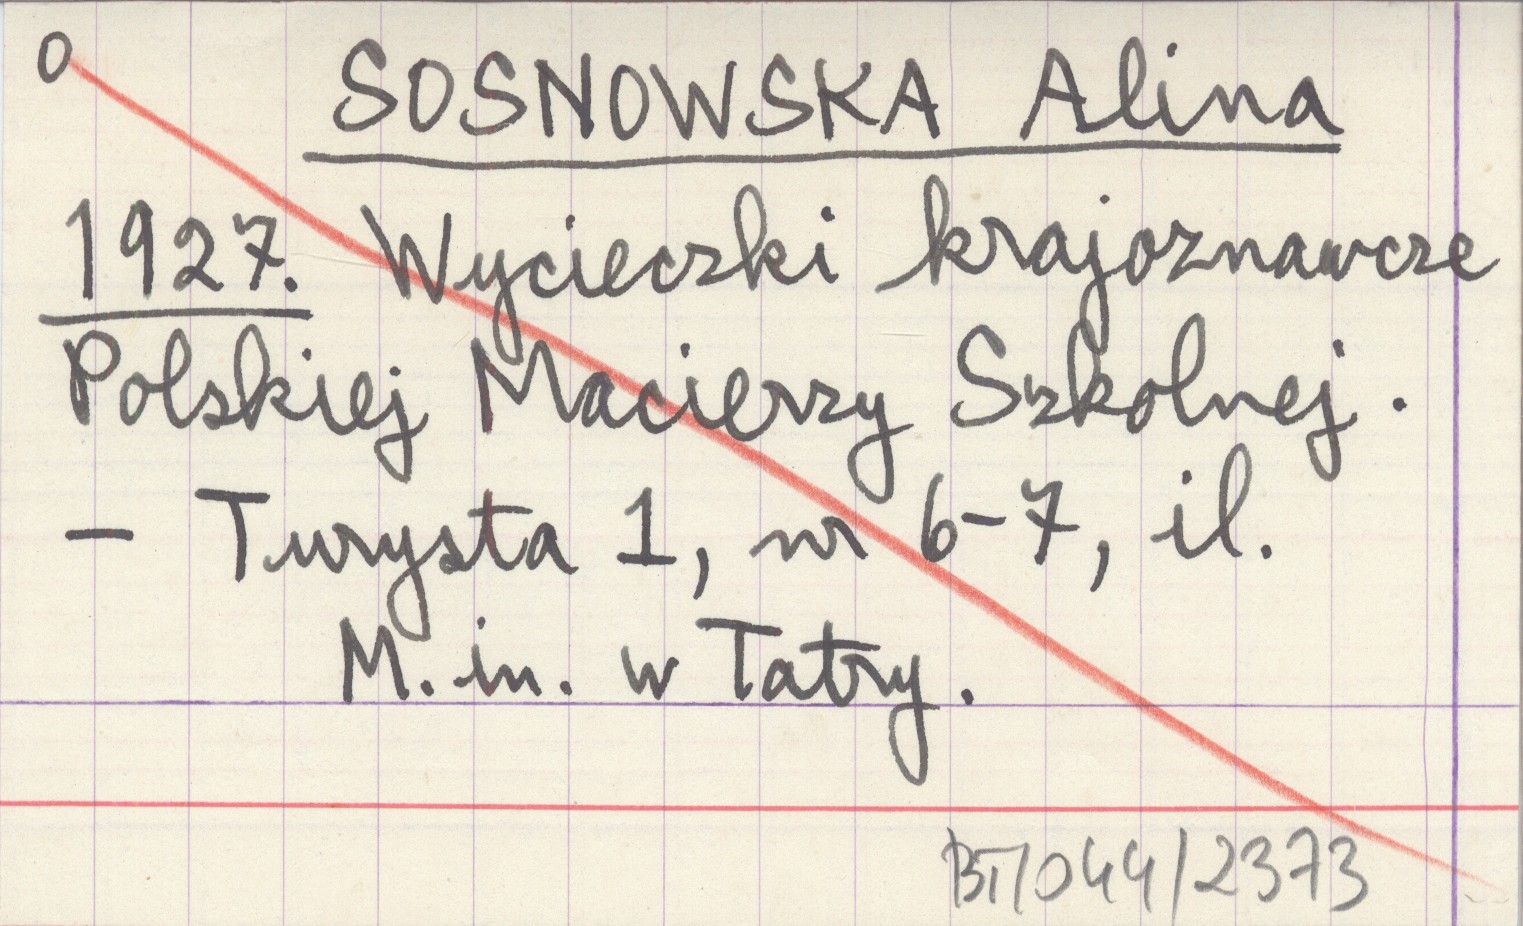 O
SOSNOWSKA Alina
1927. Wycieczki krajoznawcze
Polskiej Macierzy Szkolnej.
- Turysta 1, nr 6-7, il.
M. in. w Tatry.
BT/044/2373